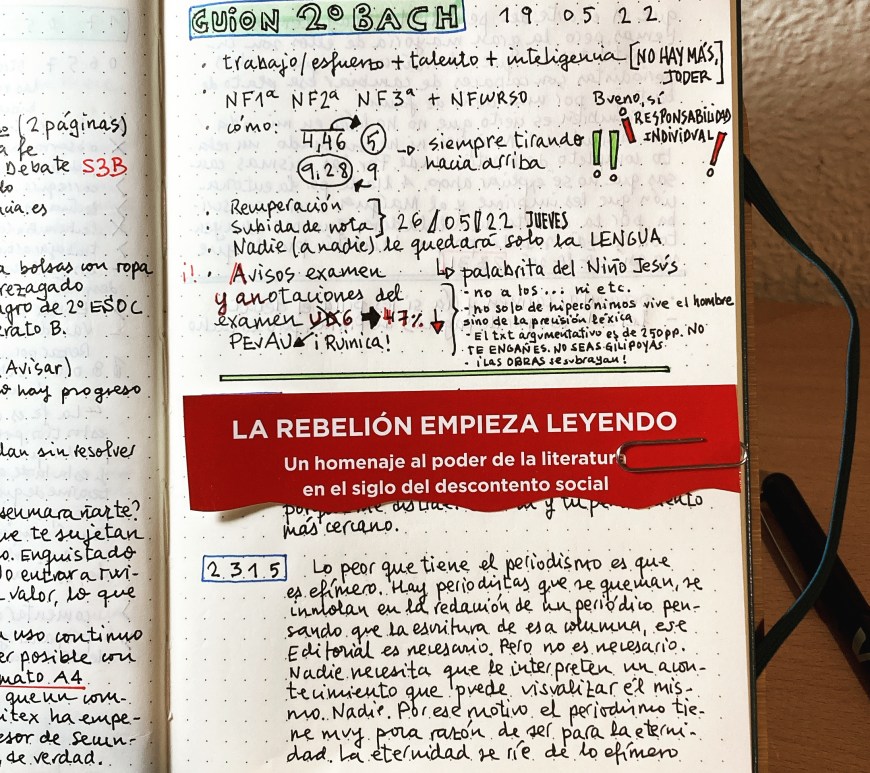 (2 páginas)
a fe
Debate S3B
do
ncia.es
a bolsas con ropa
rezagado
agro de 2º ESO C
erato B.
Avisar)
o hay progreso
dan sin resolver
senmarañarte?
ue te sujetan
o. Enquistado
o entrar a rui-
valor, lo que
a uso continuo
er posible con
mato A4
que un com-
itex ha empe-
esor de Secun-
, de verdad.
GUIÓN 2º BACH 19 05 22
· trabajo/esfuerzo + talento + inteligencia [NO HAY MÁS, JODER]
· NF1ª NF2ª NF3ª + NFCURSO
Bueno, sí
¡RESPONSABILIDAD
INDIVIDUAL!
· cómo: 4,46 5 siempre tirando
9,28 . 9 hacia arriba
· Recuperación
· Subida de nota } 26/05/22 JUEVES
· Nadie (a nadie) le quedará solo la LENGUA
¡! · Avisos examen ↳ palabrita del Niño Jesús
y anotaciones del
examen UD6 ➡ 47% ↓
PEvAU ¡Ruinica!
- no a los... ni etc.
- no solo de hiperónimos vive el hombre
sino de la precisión léxica
- El txt argumentativo es de 250 pp. NO
TE ENGAÑES. NO SEAS GILIPOYAS.
- ¡LAS OBRAS se subrayan!
LA REBELIÓN EMPIEZA LEYENDO
Un homenaje al poder de la literatura
en el siglo del descontento social
más cercano.
2.315 Lo peor que tiene el periodismo es que
es efímero. Hay periodistas que se queman, se
inmolan en la redación de un periódico pen-
sando que la escritura de esa columna, ese
Editorial es necesario. Pero no es necesario.
Nadie necesita que le interpreten un acon-
tecimiento que puede visualizar él mis-
mo. Nadie. Por ese motivo el periodismo tie-
ne muy poca razón de ser para la eterni-
dad. La eternidad se ríe de lo efímero